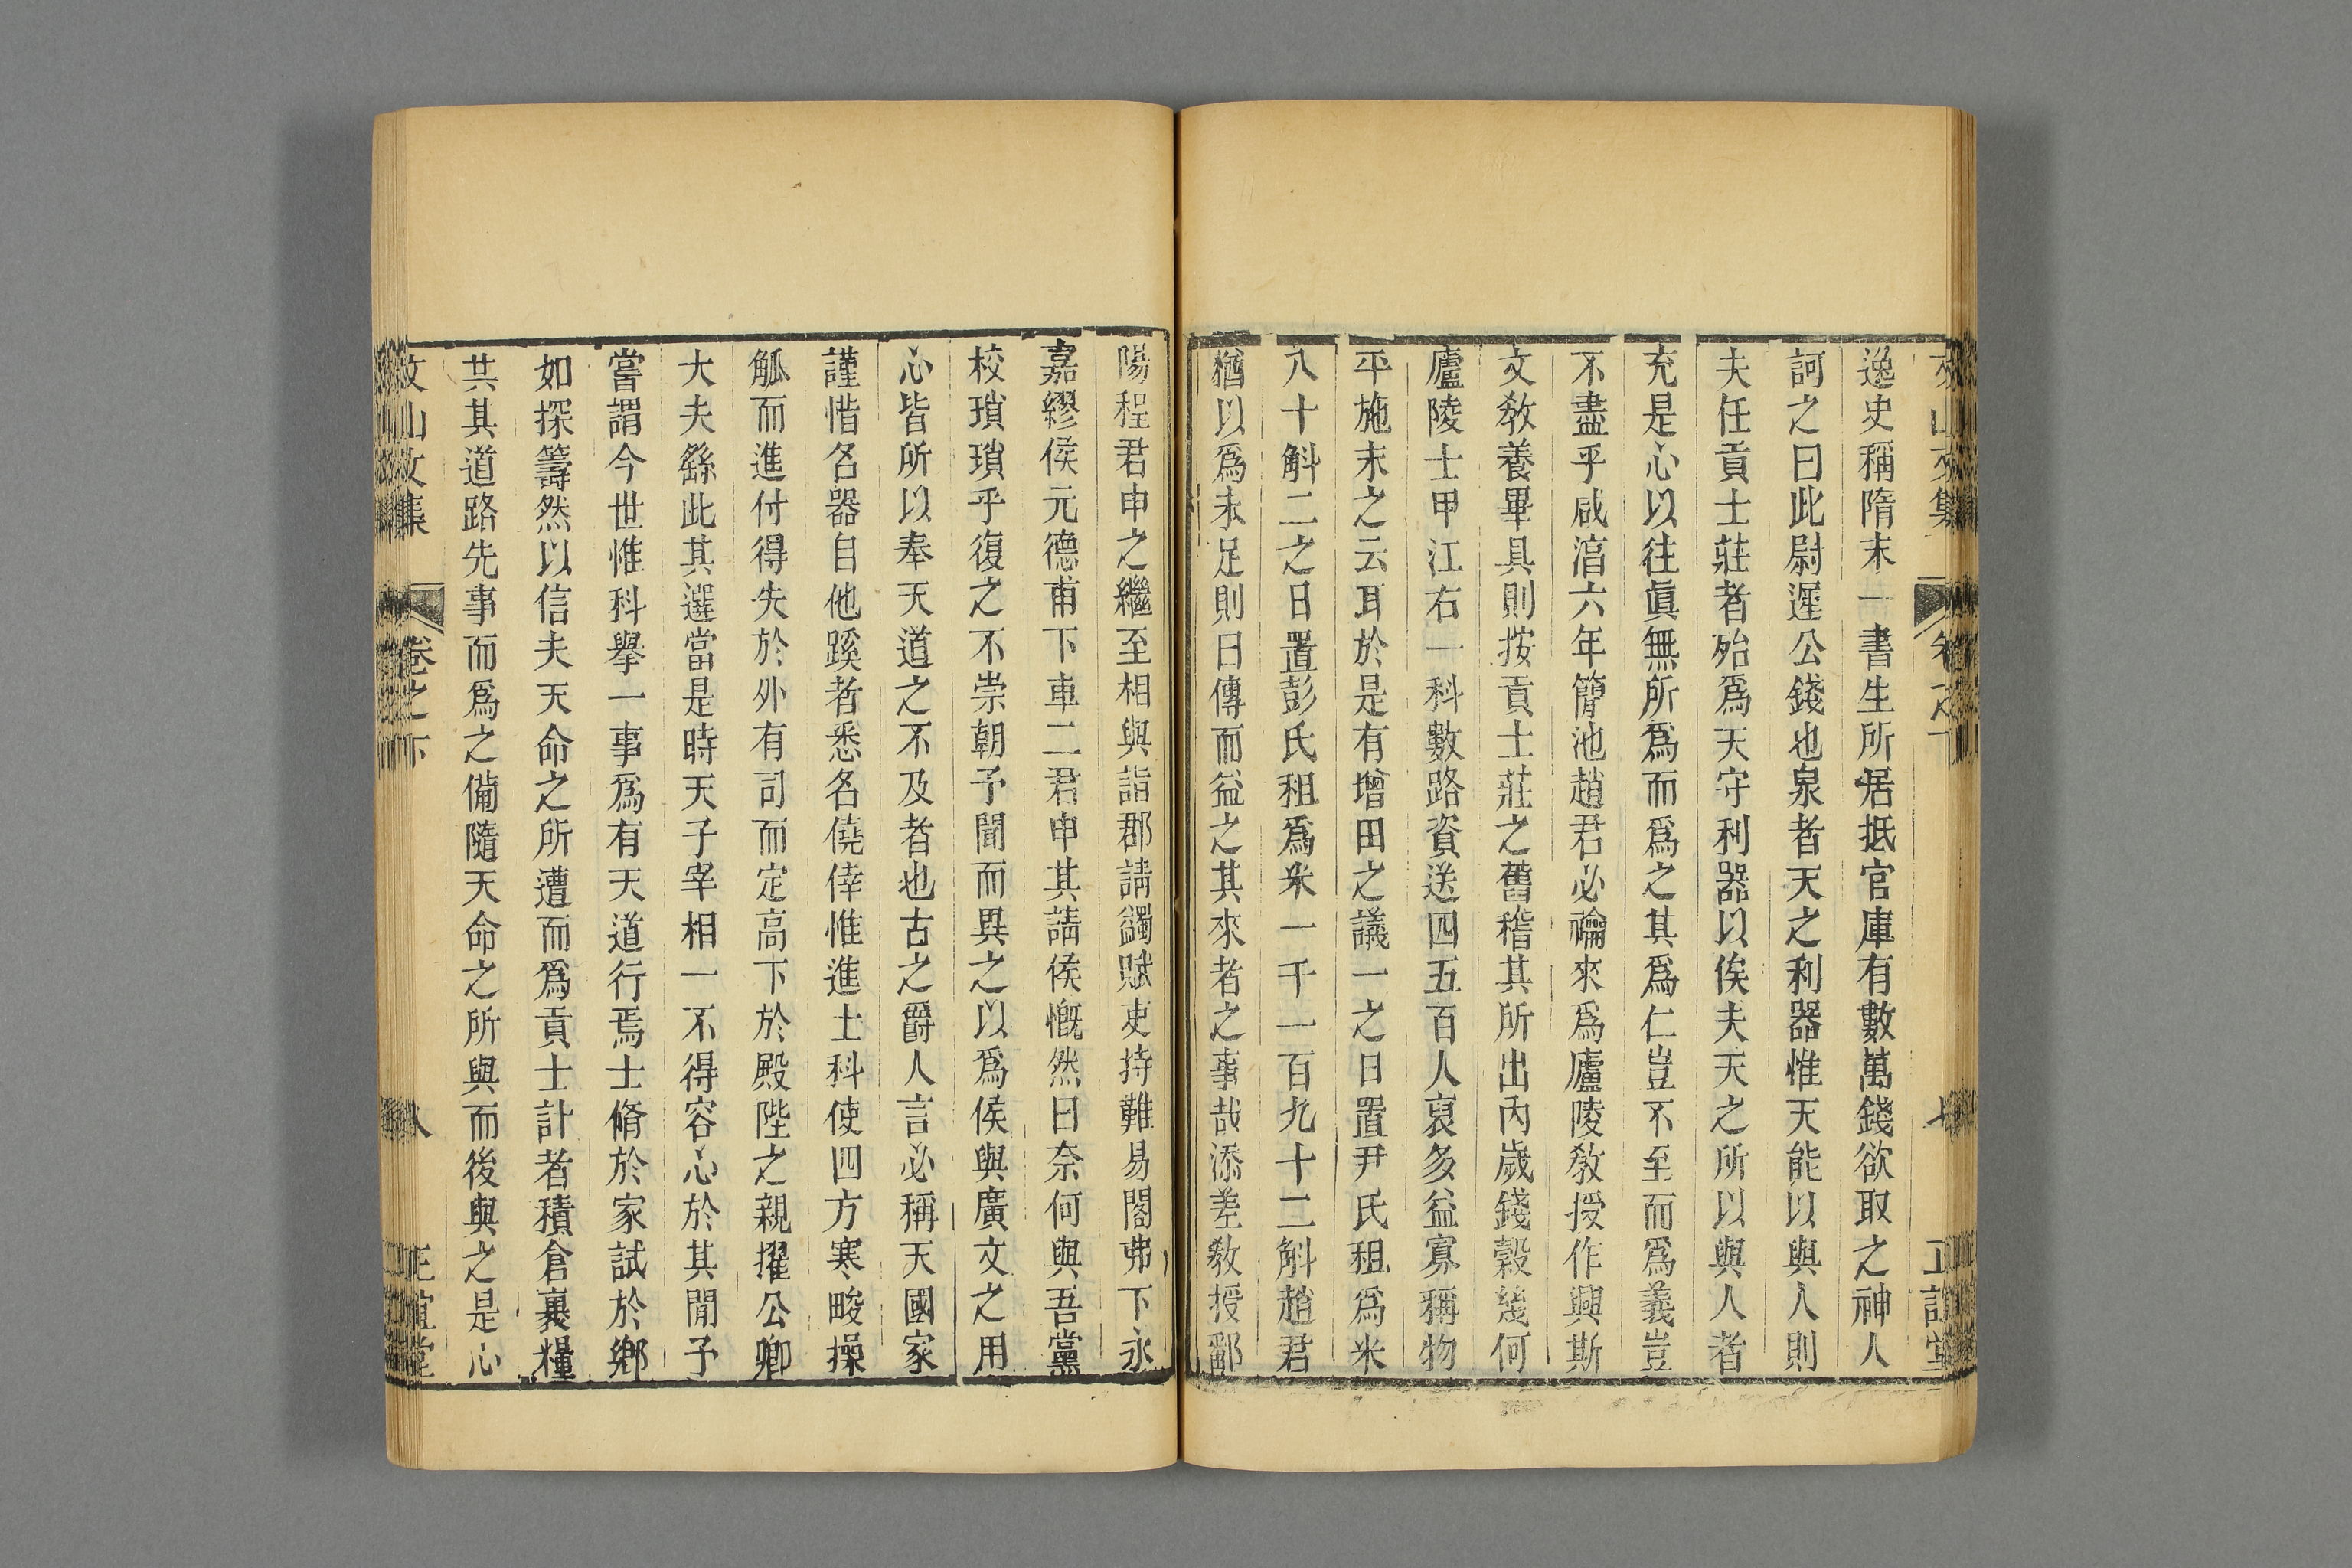 逸史稱隋末一書生所居抵官庫有數萬錢欲取之神人
訶之曰此尉遲公錢也泉者天之利器惟天能以與人則
夫任貢士莊者殆爲天守利器以俟夫天之所以與人者
充是心以往眞無所爲而爲之其爲仁豈不至而爲義豈
不盡乎咸淳六年簡池趙君必禴來爲廬陵敎授作興斯
文敎養畢具則按貢士莊之舊稽其所出內歲錢穀幾何
廬陵士甲江右一科數路資送四五百人裒多益寡稱物
平施末之云耳於是有增田之議一之日置尹氏租爲米
八十斛二之日置彭氏租爲米一千一百九十二斛趙君
猶以爲未足則曰傳而益之其來者之事哉添差敎授鄱
陽程君申之繼至相與詣郡請蠲賦吏持難易閣弗下永
嘉繆侯元德甫下車二君申其請侯慨然曰奈何與吾黨
校瑣瑣乎復之不崇朝予聞而異之以爲侯與廣文之用
心皆所以奉天道之不及者也古之爵人言必稱天國家
謹惜名器自他蹊者悉名僥倖惟進士科使四方寒畯操
觚而進付得失於外有司而定高下於殿陛之親擢公卿
大夫繇此其選當是時天子宰相一不得容心於其閒予
嘗謂今世惟科舉一事爲有天道行焉士脩於家試於鄉
如探籌然以信夫天命之所遭而爲貢士計者積倉裹糧
共其道路先事而爲之備隨天命之所與而後與之是心
文山文集
卷之下
八
正誼堂